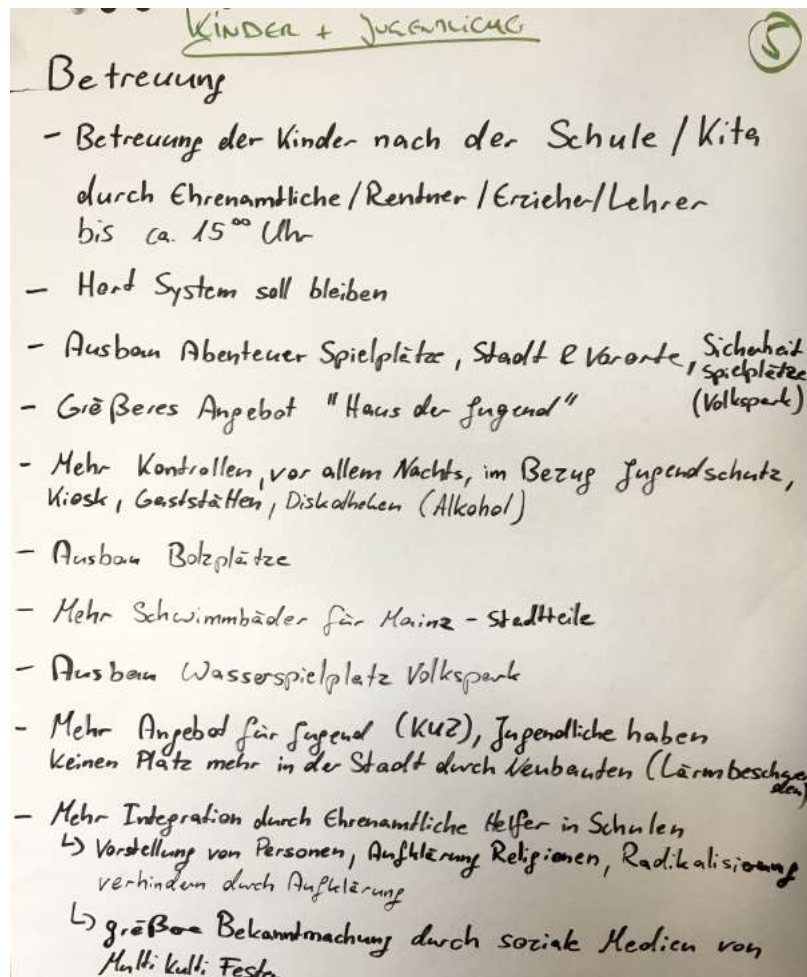 KINDER + JUGENDLICHE
5
Betreuung
- Betreuung der Kinder nach der Schule / Kita
durch Ehrenamtliche / Rentner / Erzieher / Lehrer
bis ca. 15⁰⁰ Uhr
- Hort System soll bleiben
- Ausbau Abenteuer Spielplätze, Stadt & Vororte, Sicherheit
Spielplätze
(Volkspark)
- Größeres Angebot "Haus der Jugend"
- Mehr Kontrollen, vor allem Nachts, im Bezug Jugendschutz,
Kiosk, Gaststätten, Diskotheken (Alkohol)
- Ausbau Bolzplätze
- Mehr Schwimmbäder für Mainz - Stadtteile
- Ausbau Wasserspielplatz Volkspark
- Mehr Angebot für Jugend (KUZ), Jugendliche haben
keinen Platz mehr in der Stadt durch Neubauten (Lärmbeschwer
den)
- Mehr Integration durch Ehrenamtliche Helfer in Schulen
↳ Vorstellung von Personen, Aufklärung Religionen, Radikalisierung
verhindern durch Aufklärung
↳ größere Bekanntmachung durch soziale Medien von
Multi Kulti Feste